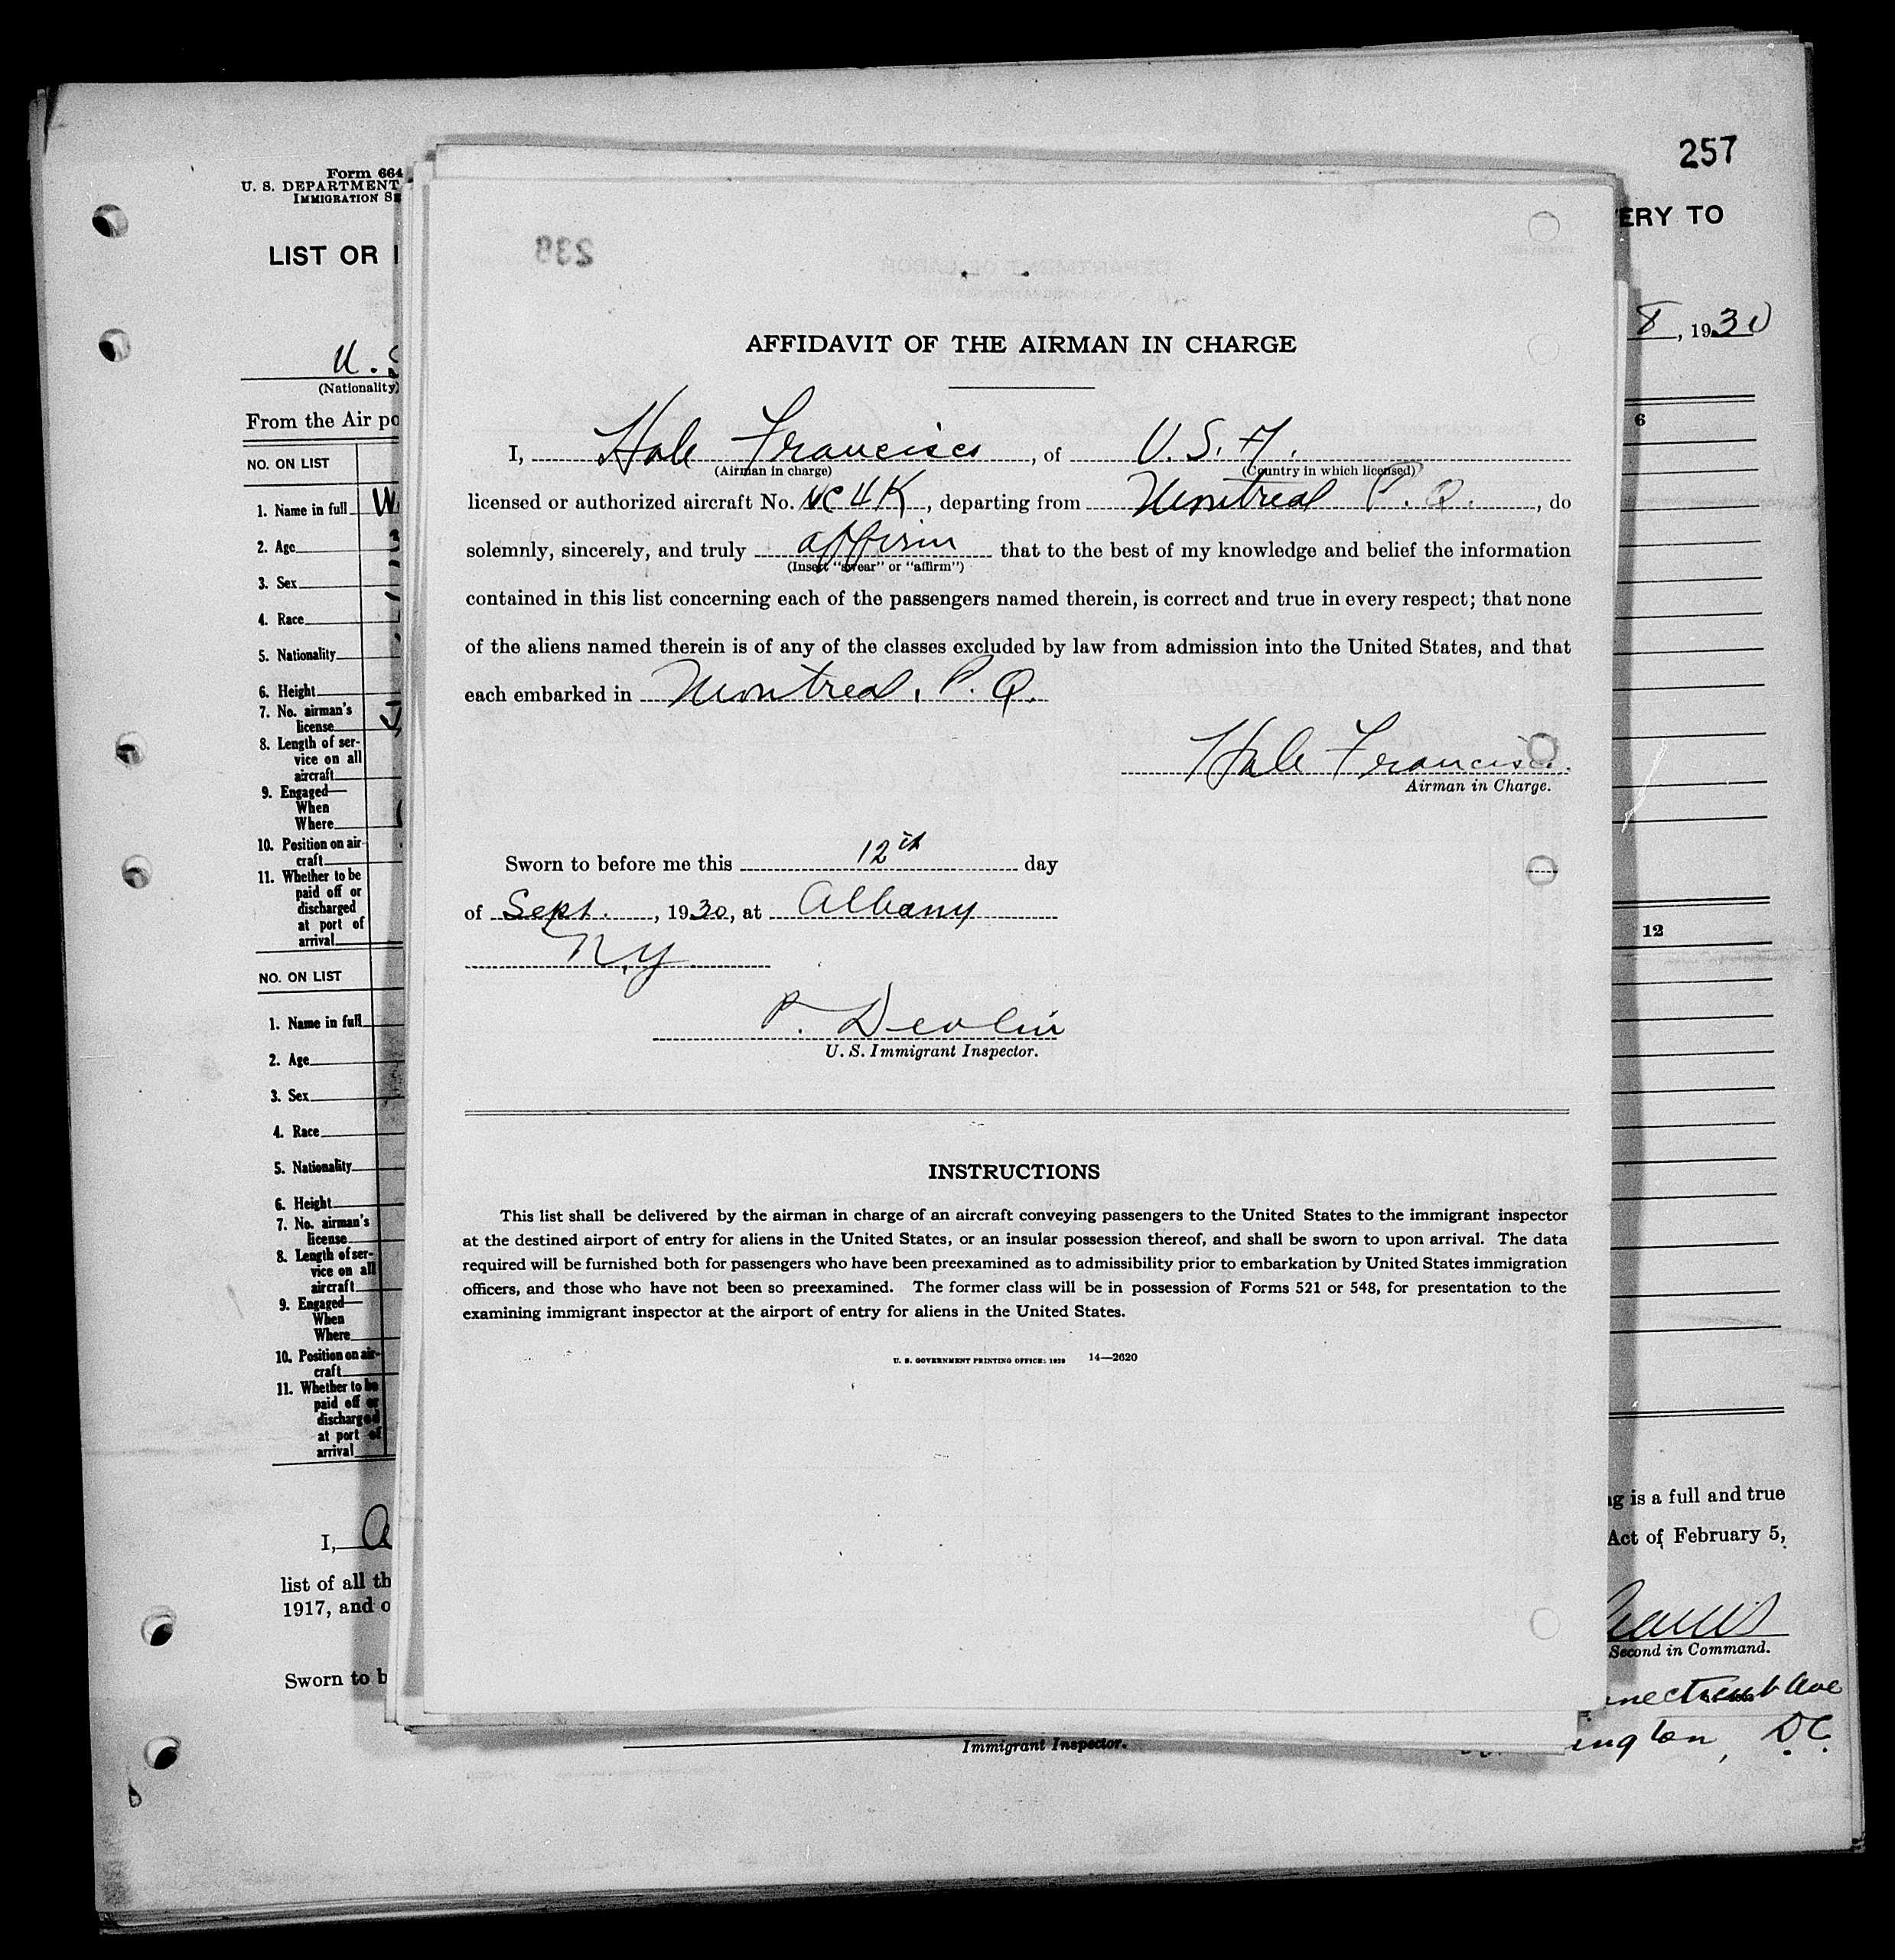 257
Form 664
U. S. DEPARTMENT
IMMIGRATION
LIST OR
ERY TO
8, 1930
U. S
(Nationality)
From the Air po
NO. ON LIST
6
1. Name in full
2. Age
3. Sex
4. Race
5. Nationality
6. Height
7. No. airman's
license
8. Length of ser-
vice on all
aircraft
9. Engaged—
When
Where
10. Position on air-
craft
11. Whether to be
paid off or
discharged
at port of
arrival
NO. ON LIST
12
1. Name in full
2. Age
3. Sex
4. Race
5. Nationality
6. Height
7. No. airman's
license
8. Length of ser-
vice on all
aircraft
9. Engaged—
When
Where
10. Position on air-
craft
11. Whether to be
paid off or
discharged
at port of
arrival
I,
list of all th
1917, and o
Sworn to b
238
AFFIDAVIT OF THE AIRMAN IN CHARGE
I, Hale Francisco, of U. S. A.
(Airman in charge) (Country in which licensed)
licensed or authorized aircraft No. NC 4K, departing from Montreal P. Q., do
solemnly, sincerely, and truly affirm that to the best of my knowledge and belief the information
(Insert "swear" or "affirm")
contained in this list concerning each of the passengers named therein, is correct and true in every respect; that none
of the aliens named therein is of any of the classes excluded by law from admission into the United States, and that
each embarked in Montreal, P. Q.
Hale Francisco
Airman in Charge.
Sworn to before me this 12th day
of Sept., 1930, at Albany
N.Y
P. Devlin
U. S. Immigrant Inspector.
INSTRUCTIONS
This list shall be delivered by the airman in charge of an aircraft conveying passengers to the United States to the immigrant inspector
at the destined airport of entry for aliens in the United States, or an insular possession thereof, and shall be sworn to upon arrival. The data
required will be furnished both for passengers who have been preexamined as to admissibility prior to embarkation by United States immigration
officers, and those who have not been so preexamined. The former class will be in possession of Forms 521 or 548, for presentation to the
examining immigrant inspector at the airport of entry for aliens in the United States.
U. S. GOVERNMENT PRINTING OFFICE: 1929 14—2620
ng is a full and true
Act of February 5,
Second in Command.
nnecticut Ave
ington, D.C.
Immigrant Inspector.